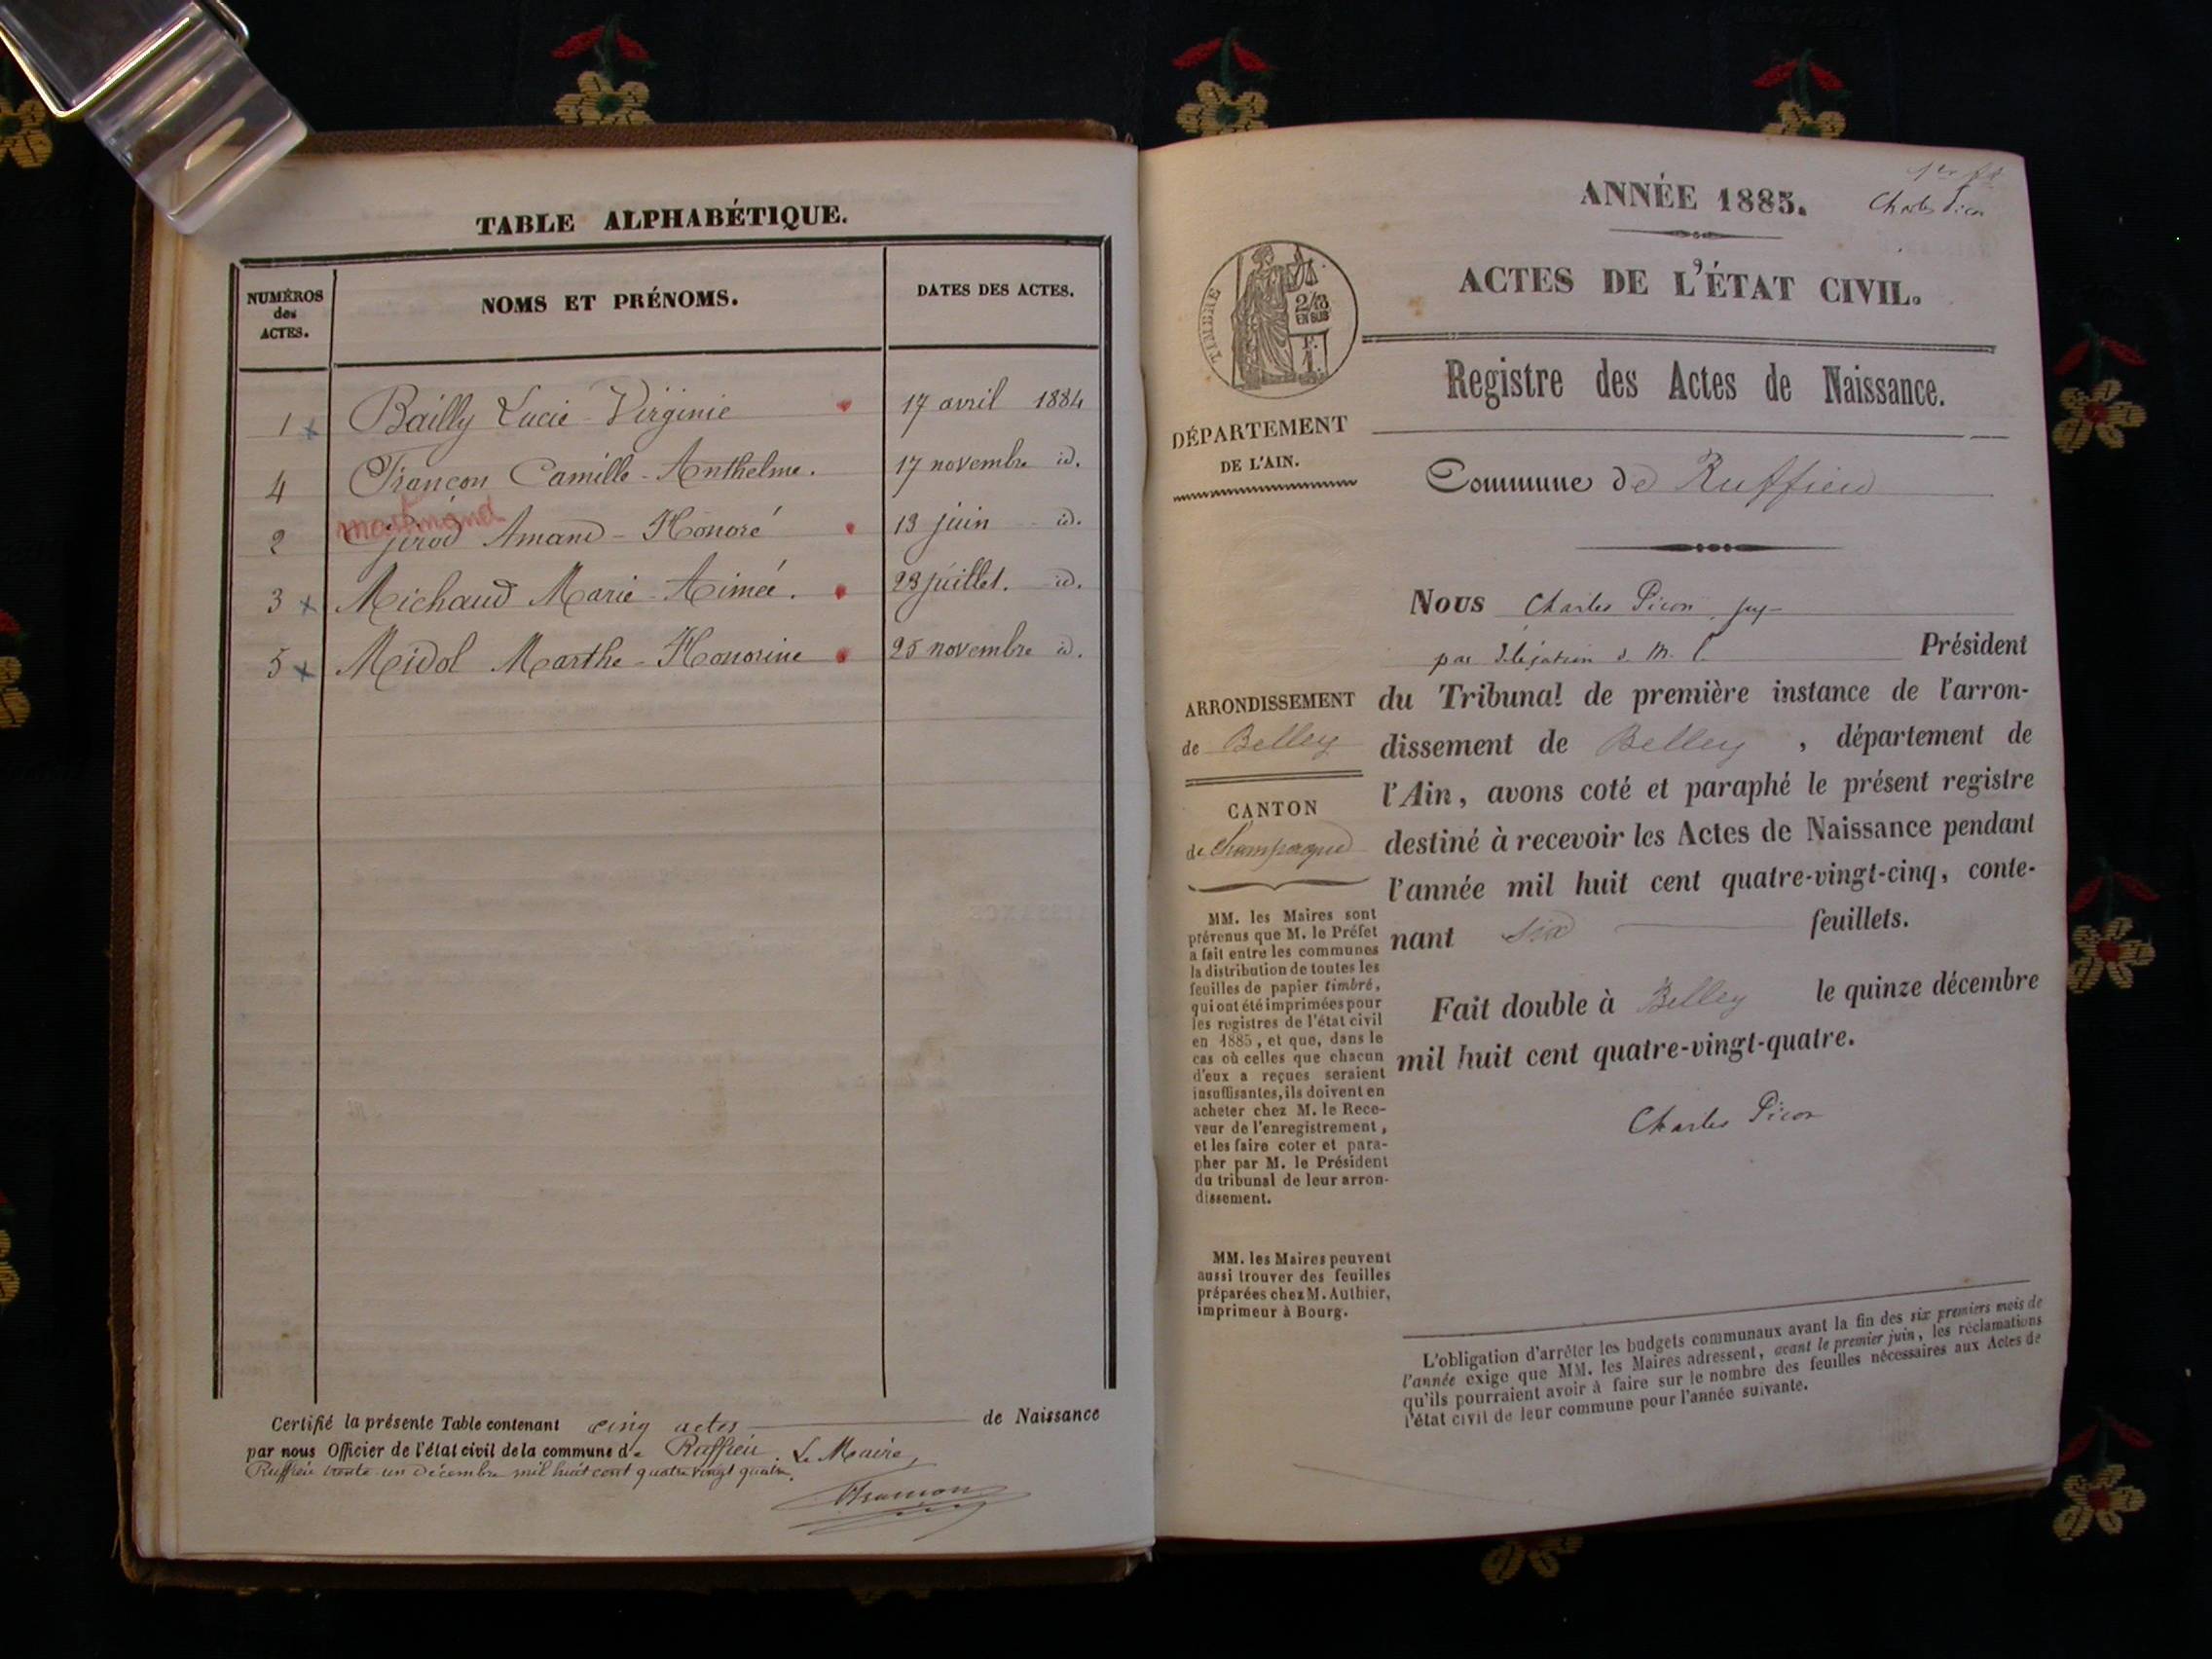 TABLE ALPHABÉTIQUE.
NUMÉROS
des
ACTES.
NOMS ET PRÉNOMS.
DATES DES ACTES.
1 Bailly Lucie - Virginie 17 avril 1884
4 Françon Camille - Anthelme. 17 novembre id.
2 Girod Amand - Honoré 13 juin id.
3 Michaud Marie - Aimée. 23 juillet. id.
5 Midol Marthe - Honorine 25 novembre id.
Certifié la présente Table contenant cinq actes de Naissance
par nous Officier de l'état civil de la commune de Ruffieu. Le Maire,
Ruffieu trente un décembre mil huit cent quatre vingt quatre.
Françon
Charles Picon
ANNÉE 1885.
ACTES DE L'ÉTAT CIVIL.
TIMBRE
2/10
EN SUS
Registre des Actes de Naissance.
DÉPARTEMENT
DE L'AIN.
Commune de Ruffieu
Nous Charles Picon, juge
par délégation de M. l.
Président
ARRONDISSEMENT
de Belley
CANTON
de Champagne
du Tribunal de première instance de l'arron-
dissement de Belley, département de
l'Ain, avons coté et paraphé le présent registre
destiné à recevoir les Actes de Naissance pendant
l'année mil huit cent quatre-vingt-cinq, conte-
nant six feuillets.
Fait double à Belley le quinze décembre
mil huit cent quatre-vingt-quatre.
Charles Picon
MM. les Maires sont
prévenus que M. le Préfet
a fait entre les communes
la distribution de toutes les
feuilles de papier timbré,
qui ont été imprimées pour
les registres de l'état civil
en 1885, et que, dans le
cas où celles que chacun
d'eux a reçues seraient
insuffisantes, ils doivent en
acheter chez M. le Rece-
veur de l'enregistrement,
et les faire coter et para-
pher par M. le Président
du tribunal de leur arron-
dissement.
MM. les Maires peuvent
aussi trouver des feuilles
préparées chez M. Authier,
imprimeur à Bourg.
L'obligation d'arrêter les budgets communaux avant la fin des six premiers mois de
l'année exige que MM. les Maires adressent, avant le premier juin, les réclamations
qu'ils pourraient avoir à faire sur le nombre des feuilles nécessaires aux Actes de
l'état civil de leur commune pour l'année suivante.